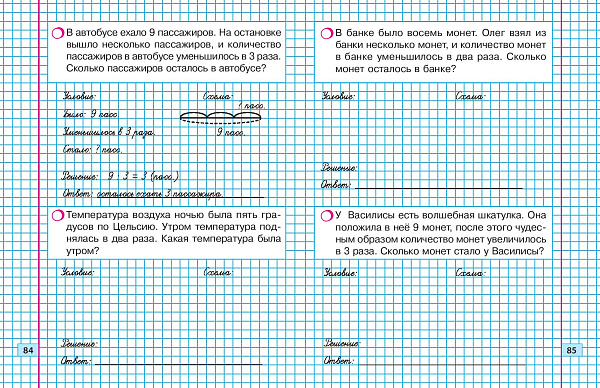 В автобусе ехало 9 пассажиров. На остановке
вышло несколько пассажиров, и количество
пассажиров в автобусе уменьшилось в 3 раза.
Сколько пассажиров осталось в автобусе?
Условие: Схема:
? пасс.
Было: 9 пасс.
Уменьшилось в 3 раза. 9 пасс.
Стало: ? пасс.
Решение: 9 : 3 = 3 (пасс.)
Ответ: осталось ехать 3 пассажира.
Температура воздуха ночью была пять гра-
дусов по Цельсию. Утром температура под-
нялась в два раза. Какая температура была
утром?
Условие: Схема:
Решение:
84
Ответ:
В банке было восемь монет. Олег взял из
банки несколько монет, и количество монет
в банке уменьшилось в два раза. Сколько
монет осталось в банке?
Условие: Схема:
Решение:
Ответ:
У Василисы есть волшебная шкатулка. Она
положила в неё 9 монет, после этого чудес-
ным образом количество монет увеличилось
в 3 раза. Сколько монет стало у Василисы?
Условие: Схема:
Решение:
85
Ответ: